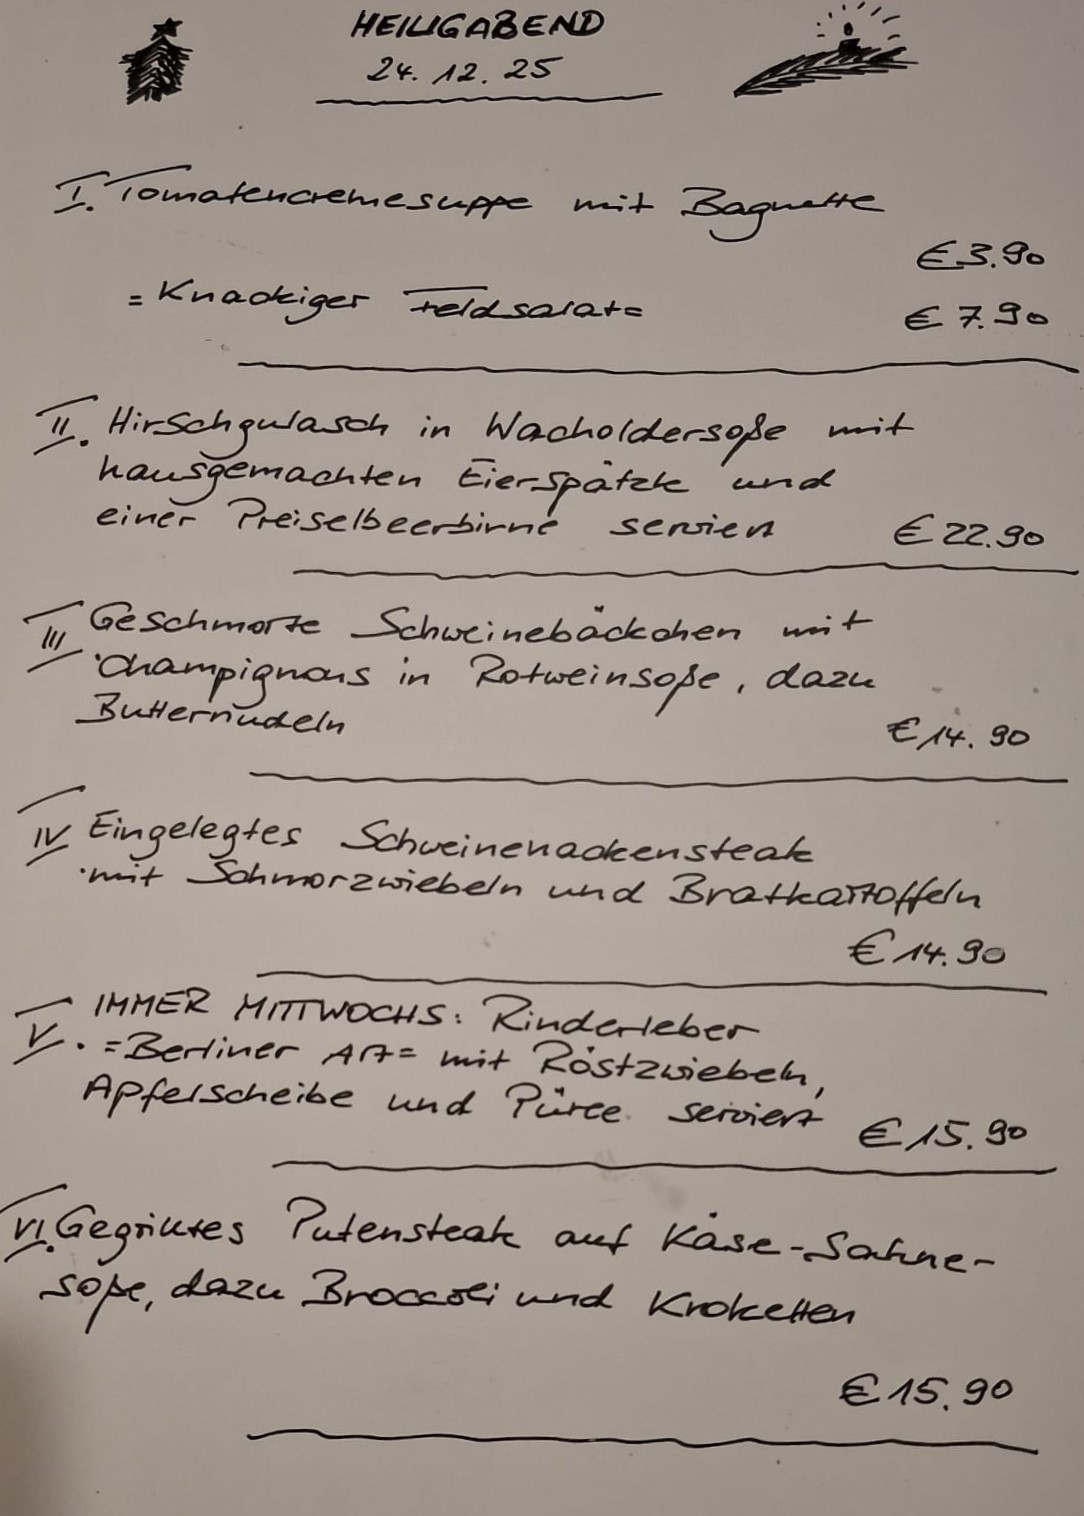 HEILIGABEND
24.12.25
I. Tomatencremesuppe mit Baguette
€ 3.90
= Knackiger Feldsalat = € 7.90
II. Hirschgulasch in Wacholdersoße mit
hausgemachten Eierspätzle und
einer Preiselbeerbirne serviert € 22.90
III. Geschmorte Schweinebäckchen mit
Champignons in Rotweinsoße, dazu
Butternudeln € 14.90
IV. Eingelegtes Schweinenackensteak
mit Schmorzwiebeln und Bratkartoffeln
€ 14.90
V. IMMER MITTWOCHS: Rinderleber
= Berliner Art = mit Röstzwiebeln,
Apfelscheibe und Püree serviert € 15.90
VI. Gegrilltes Putensteak auf Käse-Sahne-
soße, dazu Broccoli und Kroketten
€ 15.90